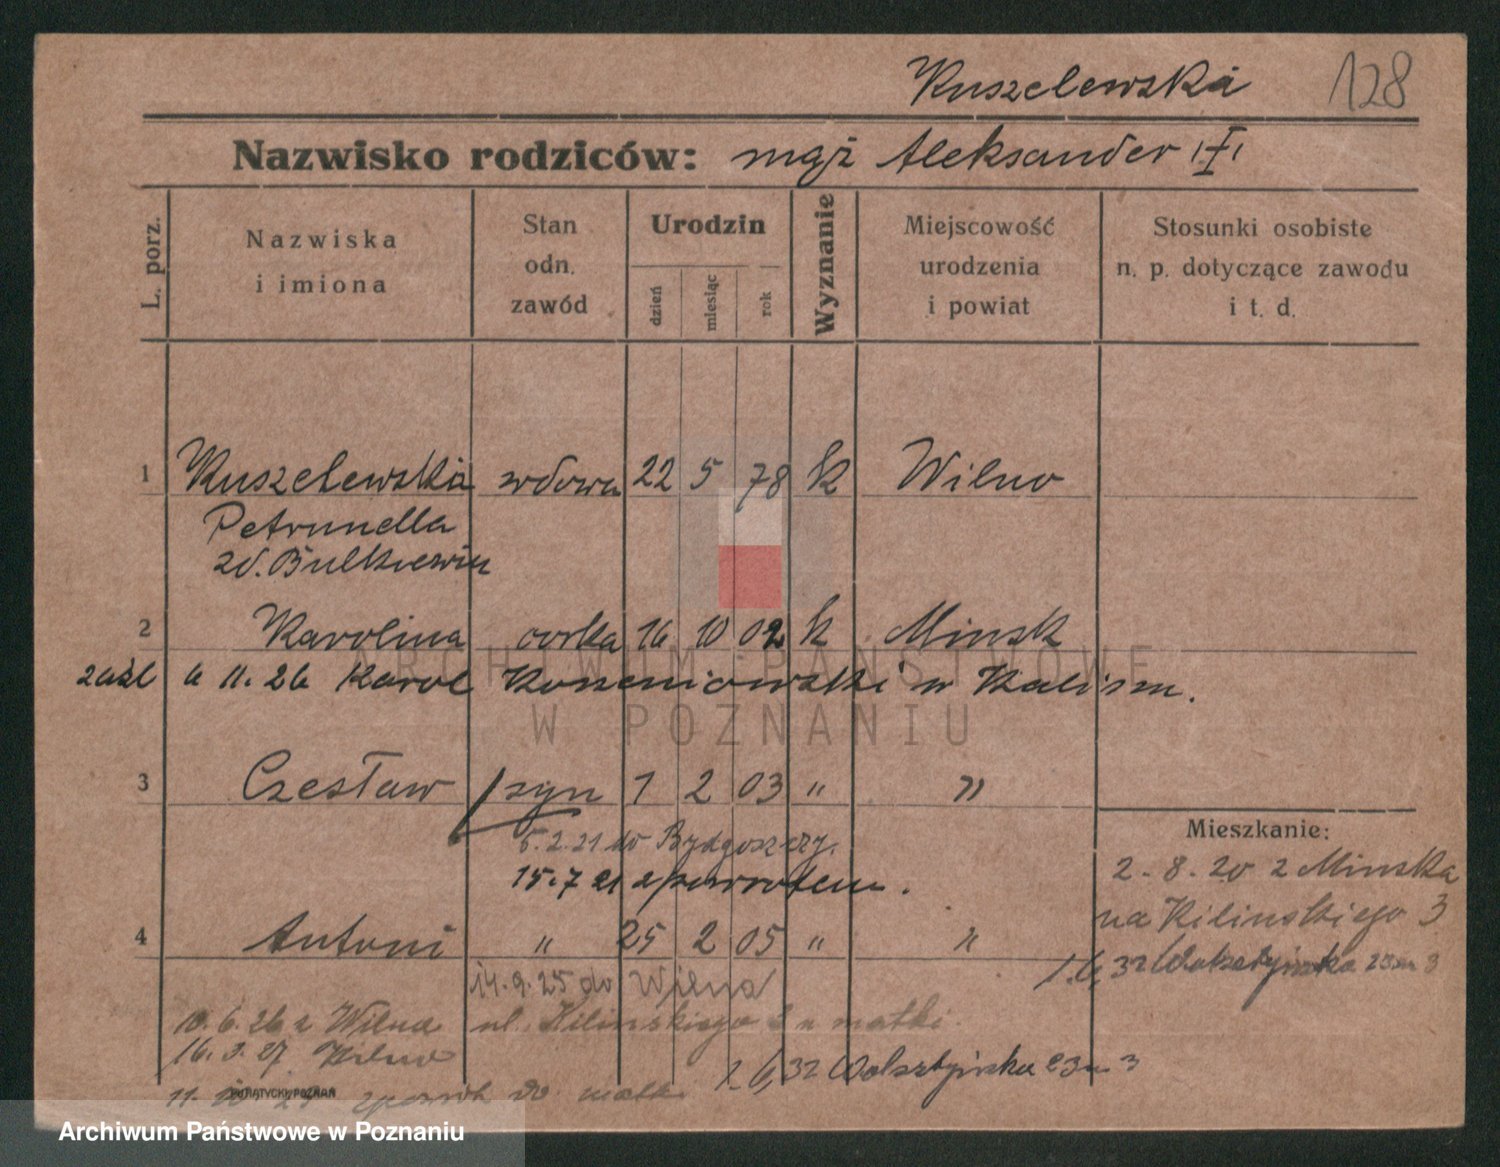 Kuszelewska 128
Nazwisko rodziców: mąż Aleksander
L. porz.
Nazwiska
i imiona
Stan
odn.
zawód
Urodzin
dzień miesiąc rok
Wyznanie
Miejscowość
urodzenia
i powiat
Stosunki osobiste
n. p. dotyczące zawodu
i t. d.
1 Kuszelewska wdowa 22 5 78 k Wilno
Petrunella
2 Karolina córka 16 10 02 k Minsk
zaśl 6 11.26 Karol w Kaliszu.
ARCHIWUM PAŃSTWOWE
W POZNANIU
3 Czesław syn 1 2 03 " "
5.2.21 do Bydgoszczy.
15.7 21 z powrotem.
Mieszkanie:
2.8.20 z Minska
na Kilinskiego 3
1.6.32 Wolsztyńska 23 m 3
4 Antoni " 25 2 05 " "
14.9.25 do Wilna
10.6.26 z Wilna ul. Kilinskiego 3 u matki.
16.3.27 Wilno
1.6.32 Wolsztyńska 23 m 3
zpowrót do matki
PUTIATYCKI, POZNAŃ
Archiwum Państwowe w Poznaniu